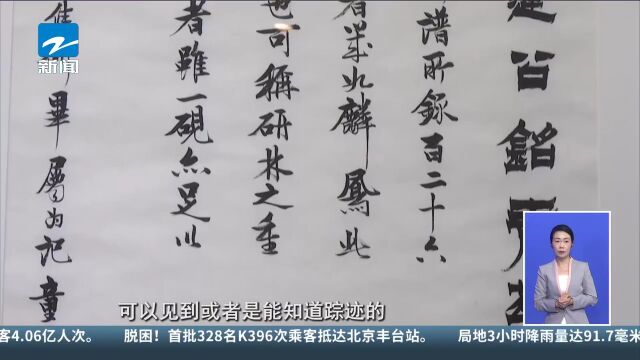 新闻
百銘
譜所錄百二十六
者 如麟鳳此
也可稱研林之重
者雖一硯亦足以
畢屬为記童
可以见到或者是能知道踪迹的
客4.06亿人次。 脱困！首批328名K396次乘客抵达北京丰台站。 局地3小时降雨量达91.7毫米